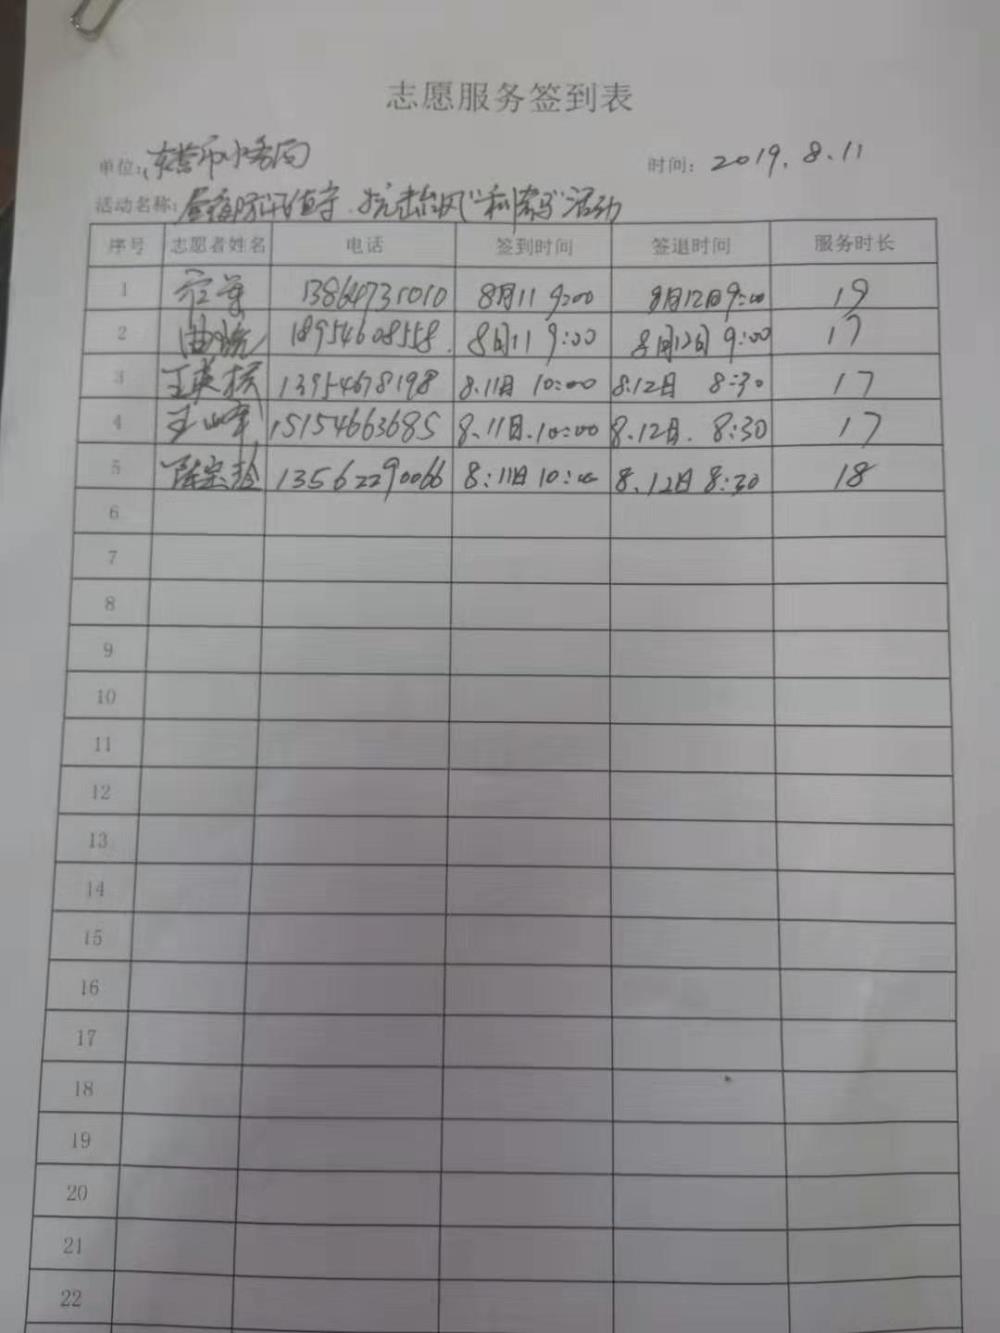 志愿服务签到表
单位:东营市水务局 时间: 2019.8.11
活动名称:昼夜防汛值守、抗击台风"利奇马"活动
序号 志愿者姓名 电话 签到时间 签退时间 服务时长
1 13864731010 8月11 9:00 8月12日9:00 19
2 18954608558. 8月11 9:00 8月12日 9:00 17
3 王英 13954678198 8.11日 10:00 8.12日 8:30 17
4 王山 15154663685 8.11日.10:00 8.12日. 8:30 17
5 13562290066 8:11日10:00 8.12日 8:30 18
6
7
8
9
10
11
12
13
14
15
16
17
18
19
20
21
22